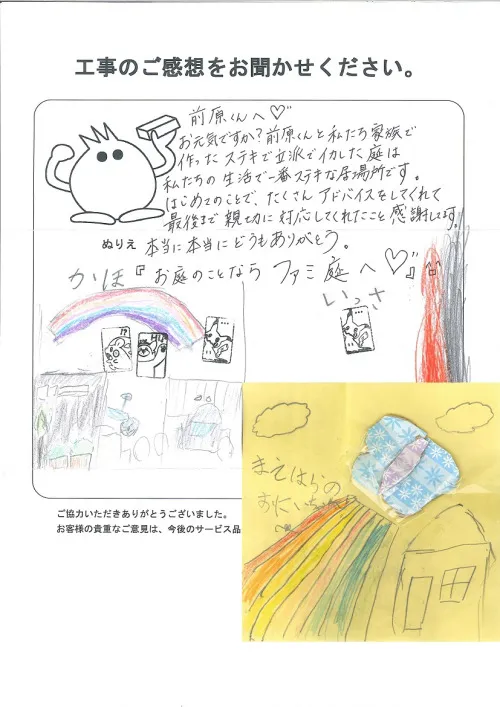 工事のご感想をお聞かせください。
前原くんへ♡
お元気ですか?前原くんと私たち家族で
作ったステキで立派でイカした庭は
私たちの生活で一番ステキな居場所です。
はじめてのことで、たくさんアドバイスをしてくれて
最後まで親切に対応してくれたこと感謝します。
ぬりえ 本当に本当にどうもありがとう。
かほ『お庭のことなら ファミ庭へ♡』
いっさ
まえはらの
おにいちゃん
ご協力いただきありがとうございました。
お客様の貴重なご意見は、今後のサービス品